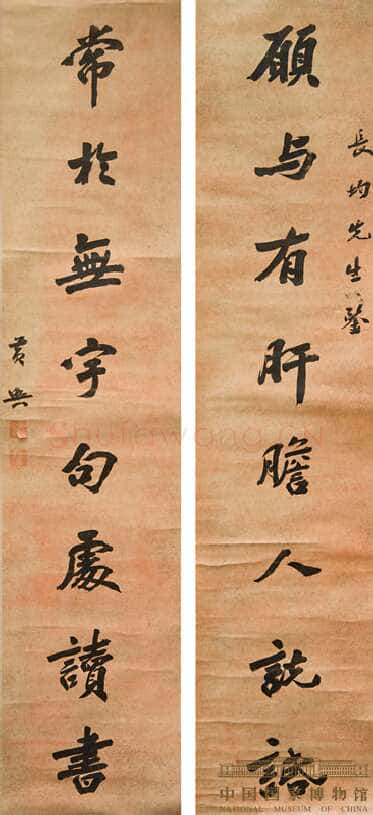 願与有肝膽人說話
長均先生鑒
常於無字句處讀書
黃興
shufawang.cn
中国国家博物馆
NATIONAL MUSEUM OF CHINA